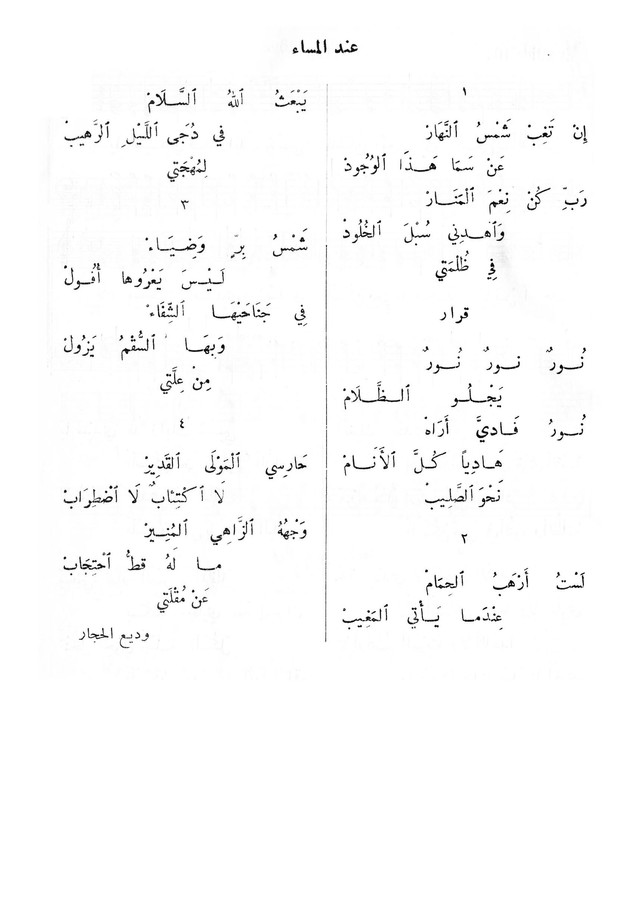 عند المساء
١
إِنْ تَغِبْ شَمْسُ ٱلنَّهَارْ
عَنْ سَمَا هَـذَا ٱلوُجُودْ
رَبِّ كُنْ نِعْمَ ٱلْمَنَـارْ
وَٱهْدِنِي سُبْلَ ٱلخُلُودْ
فِي ظُلْمَتِي
قرار
نُـورٌ نـورٌ نُـورٌ
يَجْـلُـو ٱلـظَّـلَامْ
نُـورُ فَـادِيَّ أَرَاهْ
هَـادِياً كُـلَّ ٱلأَنَـامْ
نَحْوَ ٱلصَّلِيبْ
٢
لَسْتُ أَرْهَبُ ٱلحِمَامْ
عِنْدَمَـا يَـأْتِي ٱلمَغِيبْ
يَبْعَثُ ٱللهُ ٱلسَّـلَامْ
في دُجَى ٱللَّيْلِ ٱلرَّهِيبْ
لِمُهْجَتِي
٣
شَمْسُ بِرٍّ وَضِيَـاءْ
لَـيْـسَ يَعْرُوها أُفُـولْ
فِي جَنَاحَيْهَـا ٱلشِّفَاءْ
وَبِهَـا ٱلسُّقْمُ يَزُولْ
مِنْ عِلَّتِي
٤
حَارِسِي ٱلْمَوْلَى ٱلقَدِيرْ
لَا ٱكْتِئَابٌ لَا ٱضْطِرَابْ
وَجْهُهُ ٱلزَّاهِي ٱلمُنِـيـرْ
مـا لَهُ قطُّ ٱحْتِجَابْ
عَنْ مُقْلَتِي
وديع الحجار